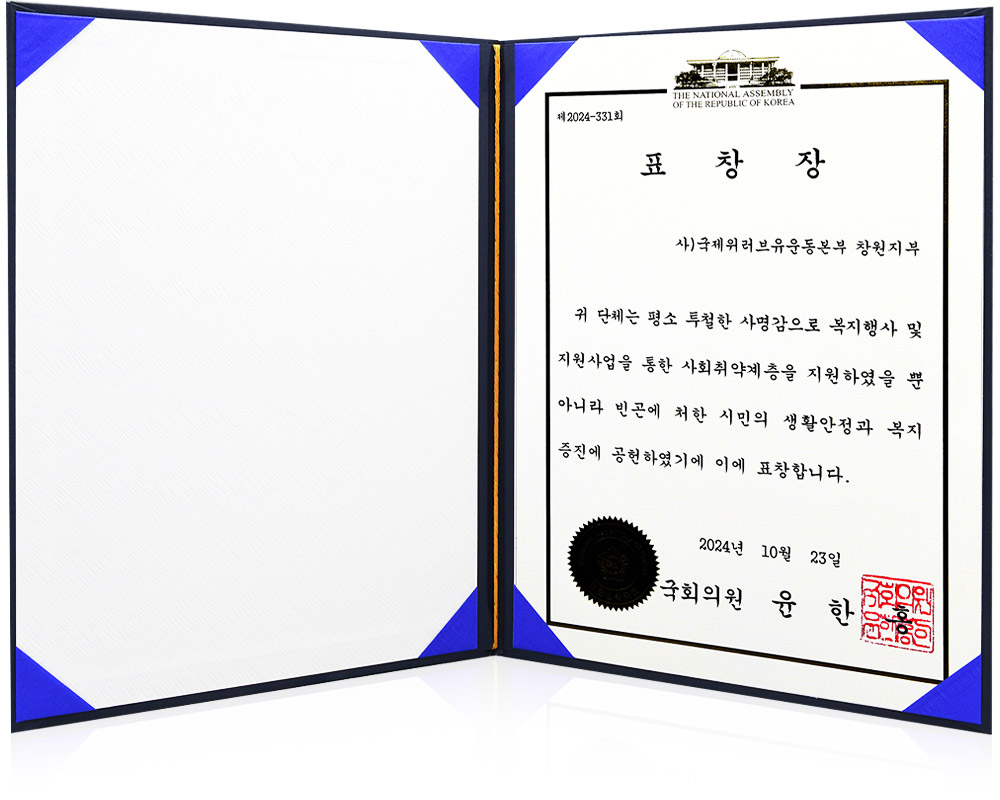 THE NATIONAL ASSEMBLY
OF THE REPUBLIC OF KOREA
제2024-331회
표 창 장
사)국제위러브유운동본부 창원지부
귀 단체는 평소 투철한 사명감으로 복지행사 및
지원사업을 통한 사회취약계층을 지원하였을 뿐
아니라 빈곤에 처한 시민의 생활안정과 복지
증진에 공헌하였기에 이에 표창합니다.
2024년 10월 23일
국회의원 윤 한 홍